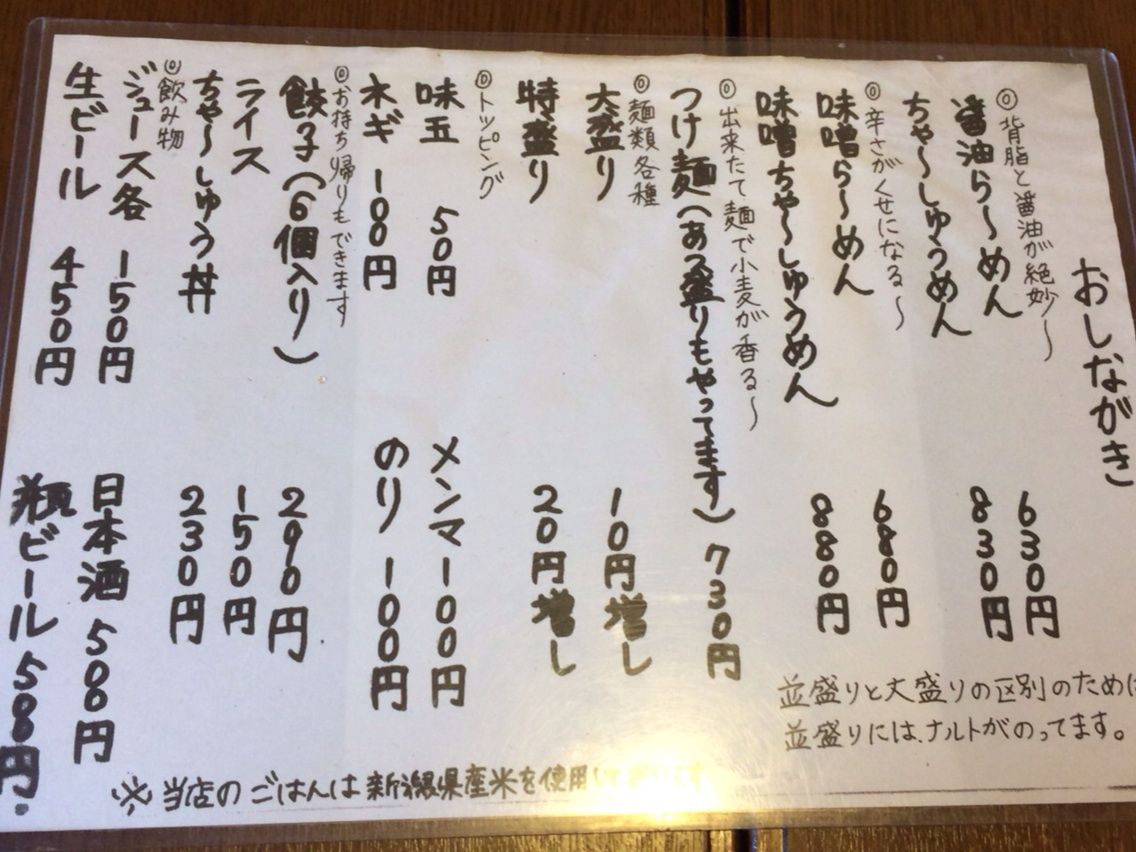 おしながき
◎背脂と醤油が絶妙～
醤油ら～めん 630円
ちゃ～しゅうめん 830円
◎辛さがくせになる～
味噌ら～めん 680円
味噌ちゃ～しゅうめん 880円
◎出来たて麺で小麦が香る～
つけ麺（あつ盛りもやってます）730円
◎麺類各種
大盛り 10円増し
特盛り 20円増し
◎トッピング
味玉 50円 メンマ 100円
ネギ 100円 のり 100円
◎お持ち帰りもできます
餃子（6個入り） 290円
ライス 150円
ちゃ～しゅう丼 230円
◎飲み物
ジュース各 150円 日本酒 500円
生ビール 450円 瓶ビール 500円
並盛りと大盛りの区別のために
並盛りには、ナルトがのってます。
※当店のごはんは新潟県産米を使用しております